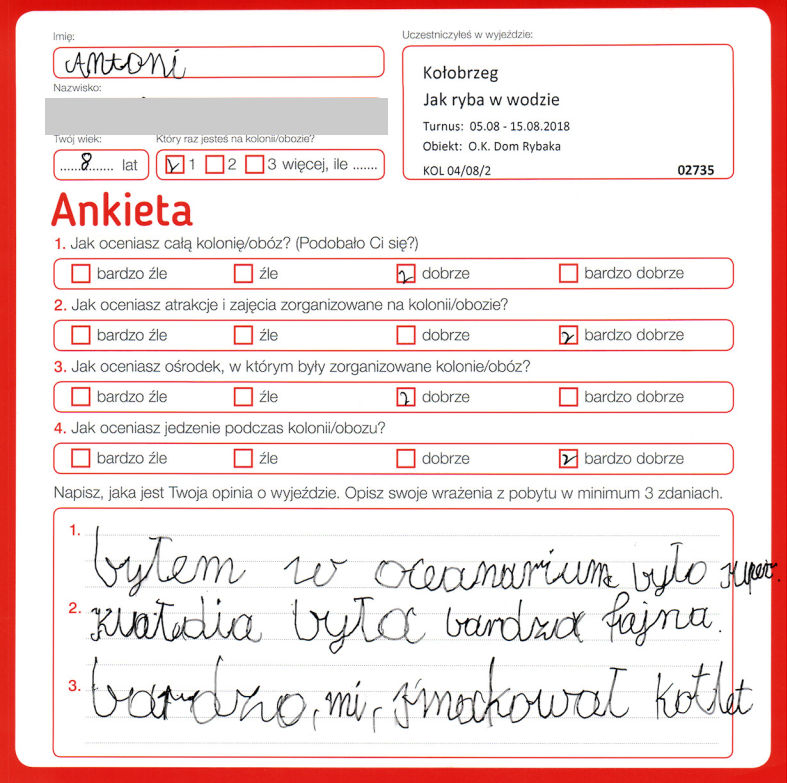 Imię:
Uczestniczyłeś w wyjeździe:
Antoni
Nazwisko:
Kołobrzeg
Jak ryba w wodzie
Turnus: 05.08 - 15.08.2018
Obiekt: O.K. Dom Rybaka
KOL 04/08/2 02735
Twój wiek: Który raz jesteś na kolonii/obozie?
8 lat 1 2 3 więcej, ile .......
Ankieta
1. Jak oceniasz całą kolonię/obóz? (Podobało Ci się?)
bardzo źle źle dobrze bardzo dobrze
2. Jak oceniasz atrakcje i zajęcia zorganizowane na kolonii/obozie?
bardzo źle źle dobrze bardzo dobrze
3. Jak oceniasz ośrodek, w którym były zorganizowane kolonie/obóz?
bardzo źle źle dobrze bardzo dobrze
4. Jak oceniasz jedzenie podczas kolonii/obozu?
bardzo źle źle dobrze bardzo dobrze
Napisz, jaka jest Twoja opinia o wyjeździe. Opisz swoje wrażenia z pobytu w minimum 3 zdaniach.
1. byłem w oceanarium było super.
2. była bardzo fajna.
3. bardzo, mi, smakował kotlet